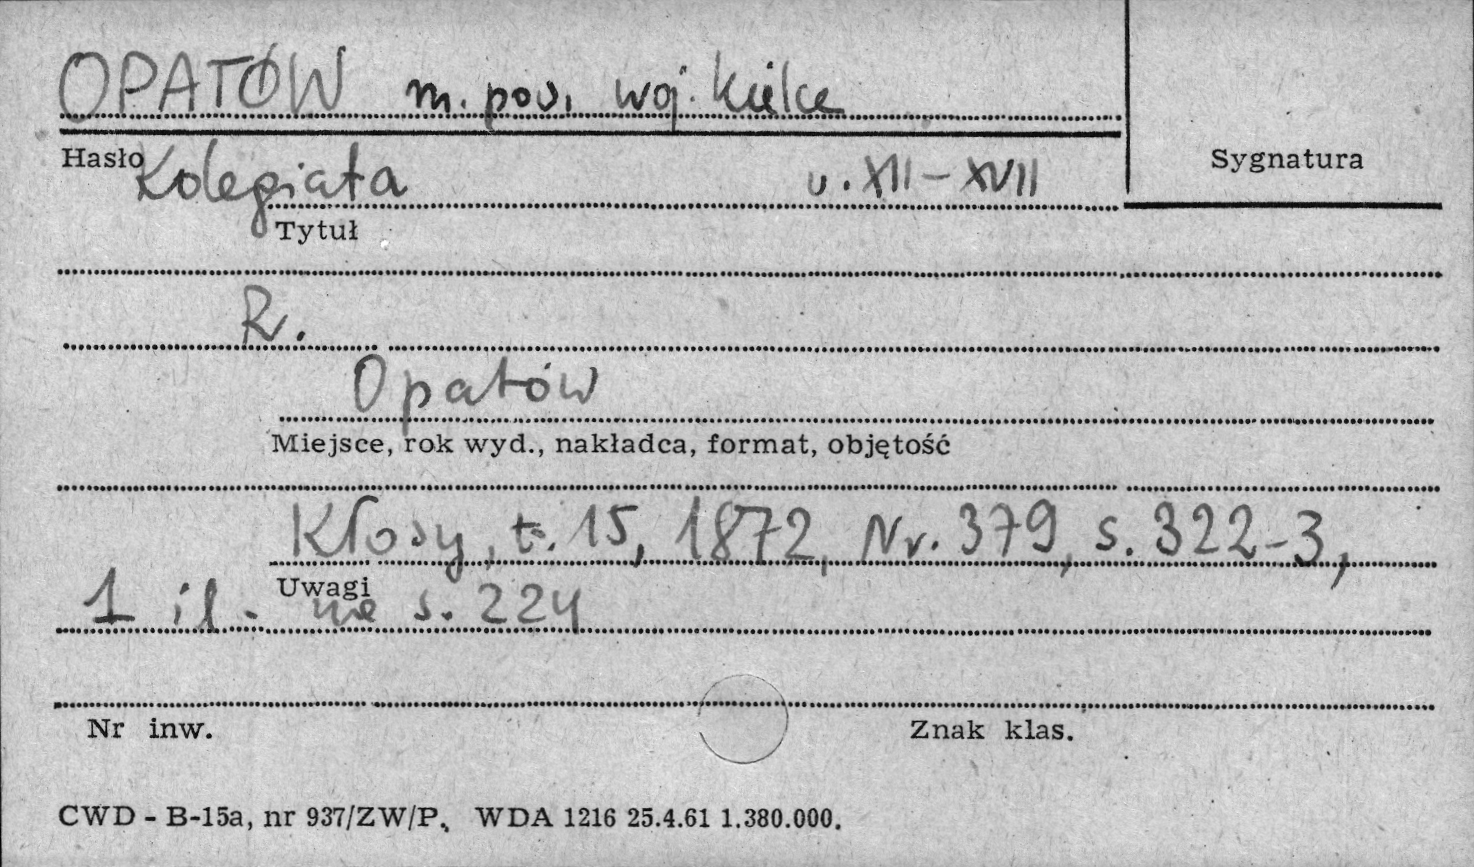 OPATÓW m. pow. woj. Kielce
Hasło
Sygnatura
Kolegiata w. XII-XVII
Tytuł
R.
Opatów
Miejsce, rok wyd., nakładca, format, objętość
Kłosy, t. 15, 1872, Nr. 379, s. 322-3,
Uwagi
1 il. na s. 224
Nr inw.
Znak klas.
CWD - B-15a, nr 937/ZW/P. WDA 1216 25.4.61 1.380.000.